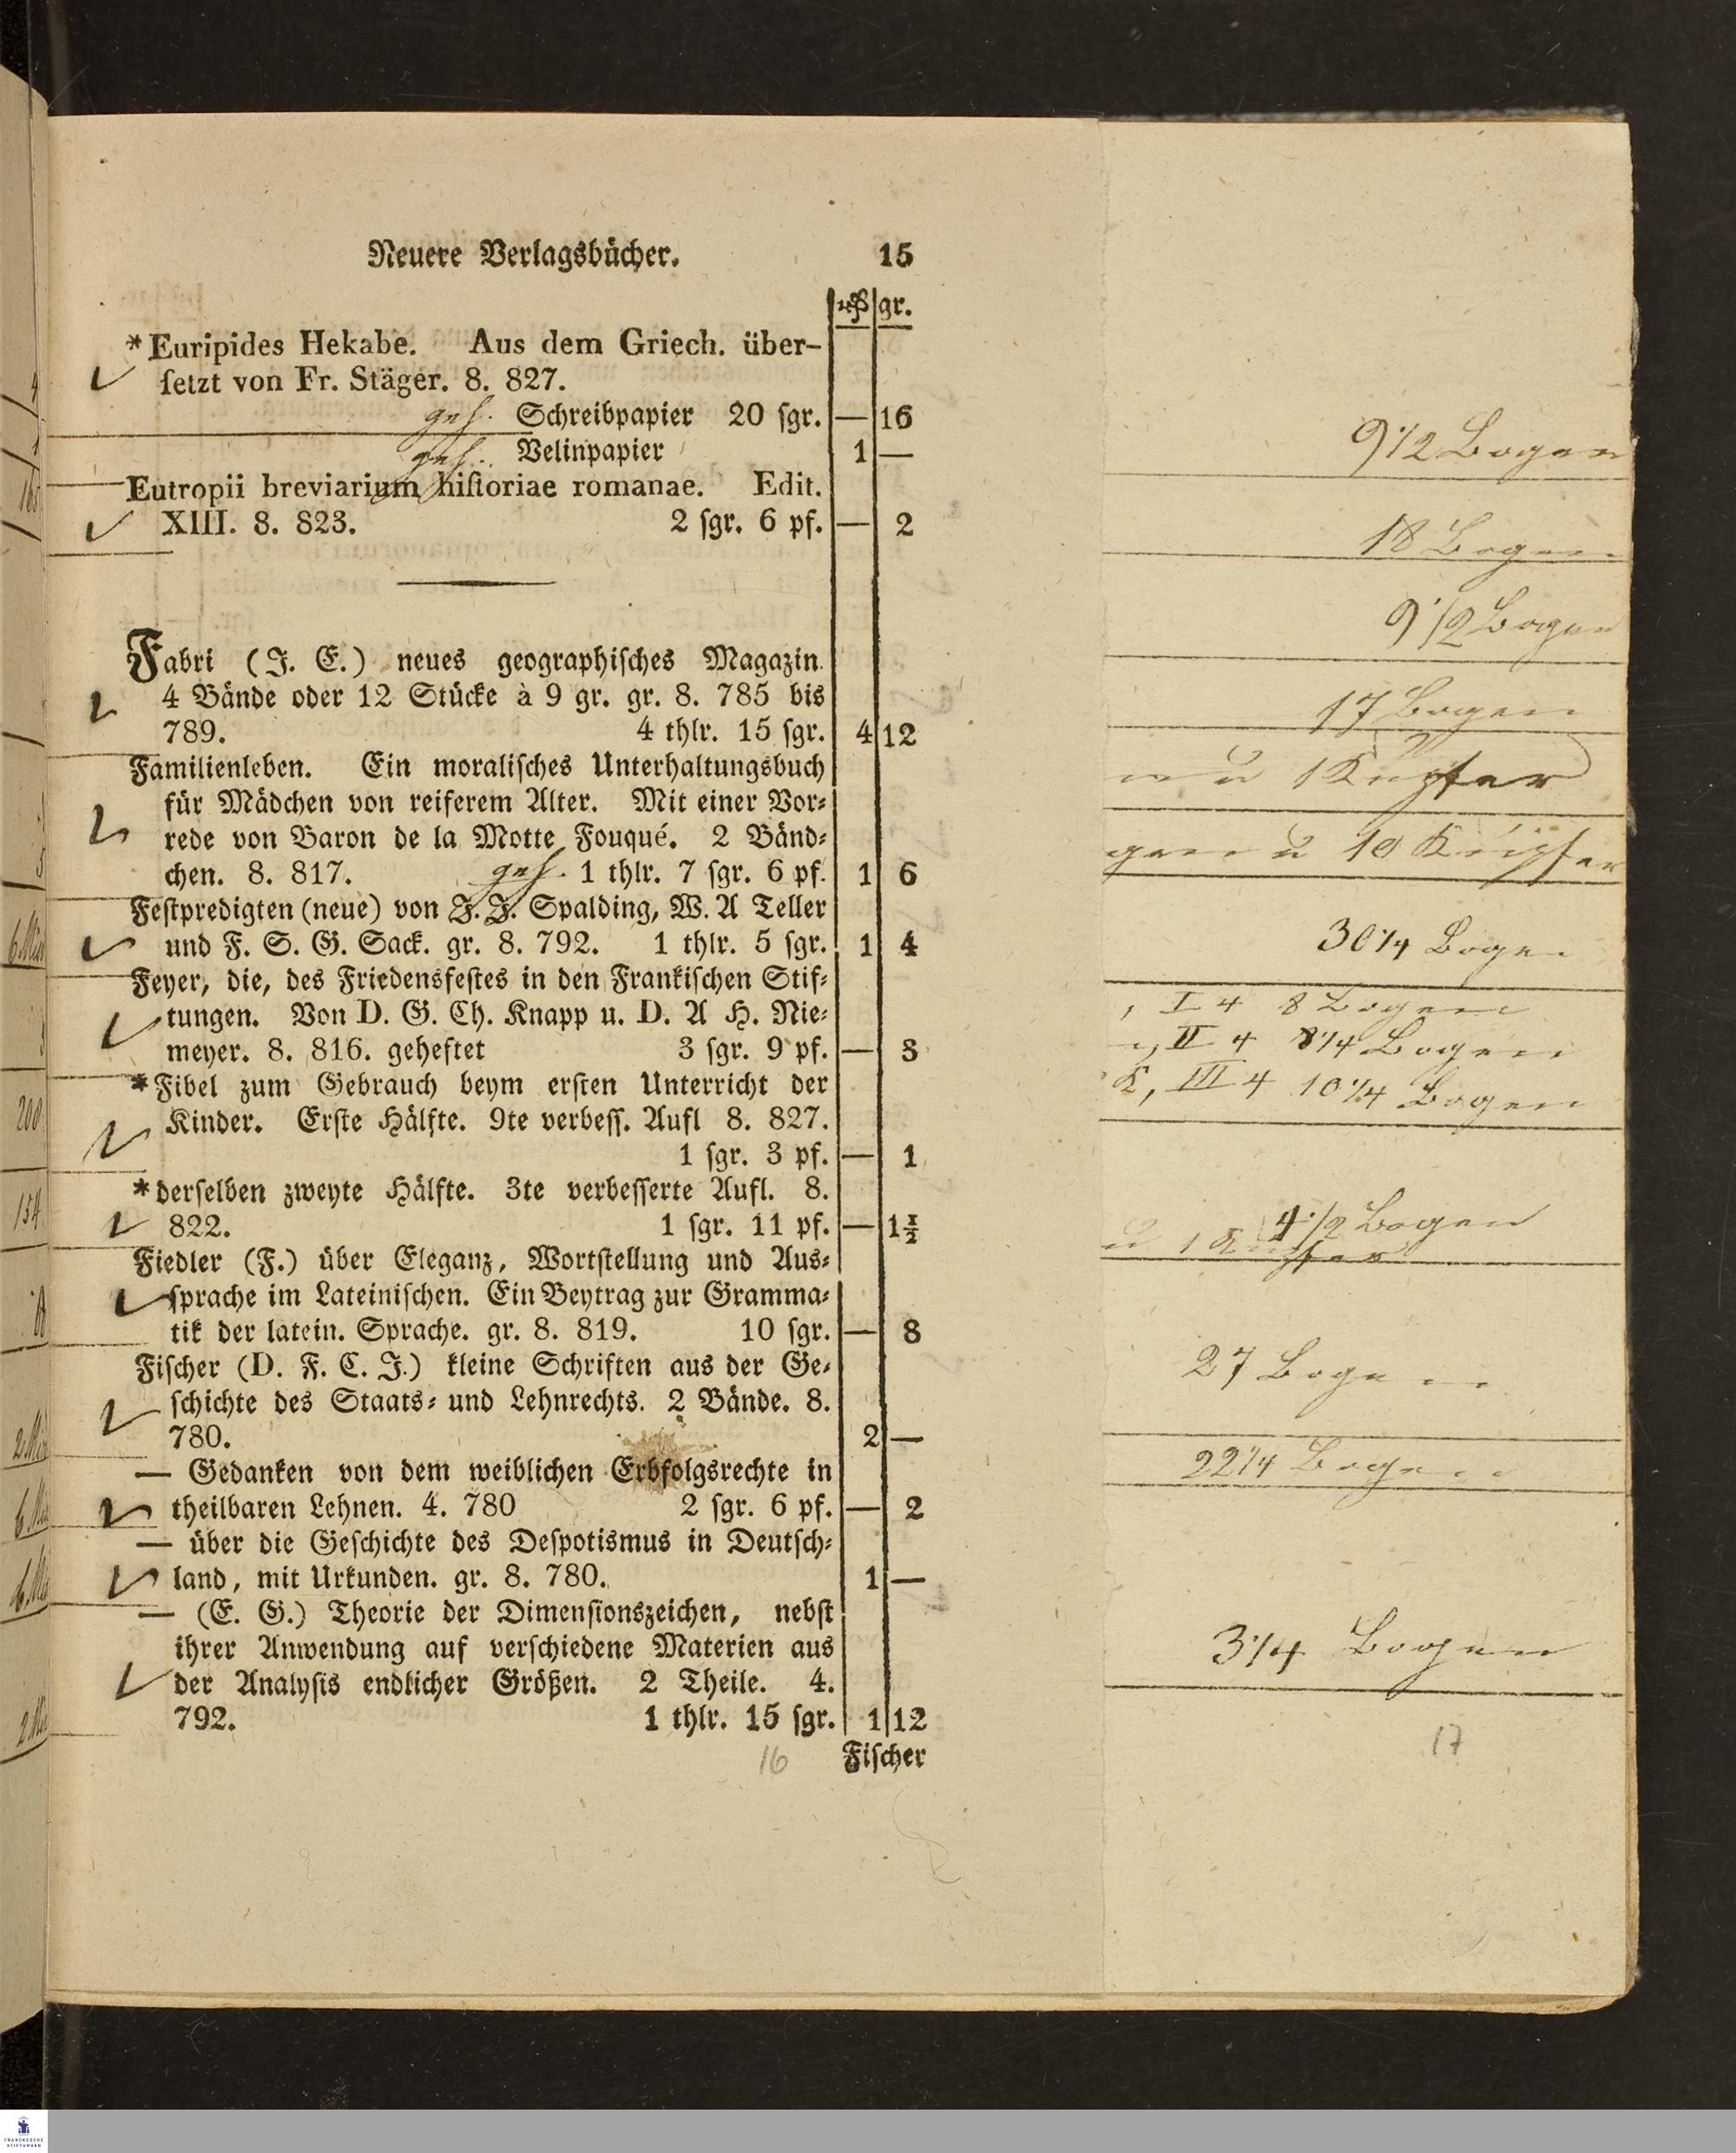 Neuere Verlagsbücher. 15
gr.
*Euripides Hekabe. Aus dem Griech. über-
ſetzt von Fr. Stäger. 8. 827.
geh. Schreibpapier 20 ſgr. — 16
geh. Velinpapier 1 —
Eutropii breviarium hiſtoriae romanae. Edit.
XIII. 8. 823. 2 ſgr. 6 pf. — 2
Fabri (J. E.) neues geographiſches Magazin.
4 Bände oder 12 Stücke à 9 gr. gr. 8. 785 bis
789. 4 thlr. 15 ſgr. 4 12
Familienleben. Ein moraliſches Unterhaltungsbuch
für Mädchen von reiferem Alter. Mit einer Vor-
rede von Baron de la Motte Fouqué. 2 Bänd-
chen. 8. 817. geh. 1 thlr. 7 ſgr. 6 pf. 1 6
Feſtpredigten (neue) von J. J. Spalding, W. A Teller
und F. S. G. Sack. gr. 8. 792. 1 thlr. 5 ſgr. 1 4
Feyer, die, des Friedensfeſtes in den Frankiſchen Stif-
tungen. Von D. G. Ch. Knapp u. D. A H. Nie-
meyer. 8. 816. geheftet 3 ſgr. 9 pf. — 3
*Fibel zum Gebrauch beym erſten Unterricht der
Kinder. Erſte Hälfte. 9te verbeſſ. Aufl 8. 827.
1 ſgr. 3 pf. — 1
*derſelben zweyte Hälfte. 3te verbeſſerte Aufl. 8.
822. 1 ſgr. 11 pf. — 1½
Fiedler (F.) über Eleganz, Wortſtellung und Aus-
ſprache im Lateiniſchen. Ein Beytrag zur Gramma-
tik der latein. Sprache. gr. 8. 819. 10 ſgr. — 8
Fiſcher (D. F. C. J.) kleine Schriften aus der Ge-
ſchichte des Staats- und Lehnrechts. 2 Bände. 8.
780. 2 —
— Gedanken von dem weiblichen Erbfolgsrechte in
theilbaren Lehnen. 4. 780 2 ſgr. 6 pf. — 2
— über die Geſchichte des Deſpotismus in Deutſch-
land, mit Urkunden. gr. 8. 780. 1 —
— (E. G.) Theorie der Dimenſionszeichen, nebſt
ihrer Anwendung auf verſchiedene Materien aus
der Analyſis endlicher Größen. 2 Theile. 4.
792. 1 thlr. 15 ſgr. 1 12
16 Fiſcher
9 1/2 Bogen
18 Bogen
9 1/2 Bogen
17 Bogen
u 1 Kupfer
gen u 10 Kupfer
30 1/4 Bogen
, I 4 8 Bogen
, II 4 8 1/4 Bogen
, III 4 10 1/4 Bogen
4 1/2 Bogen
u 1 Kupfer
27 Bogen
22 1/4 Bogen
3 1/4 Bogen
17
200
154
FRANCKESCHE
STIFTUNGEN